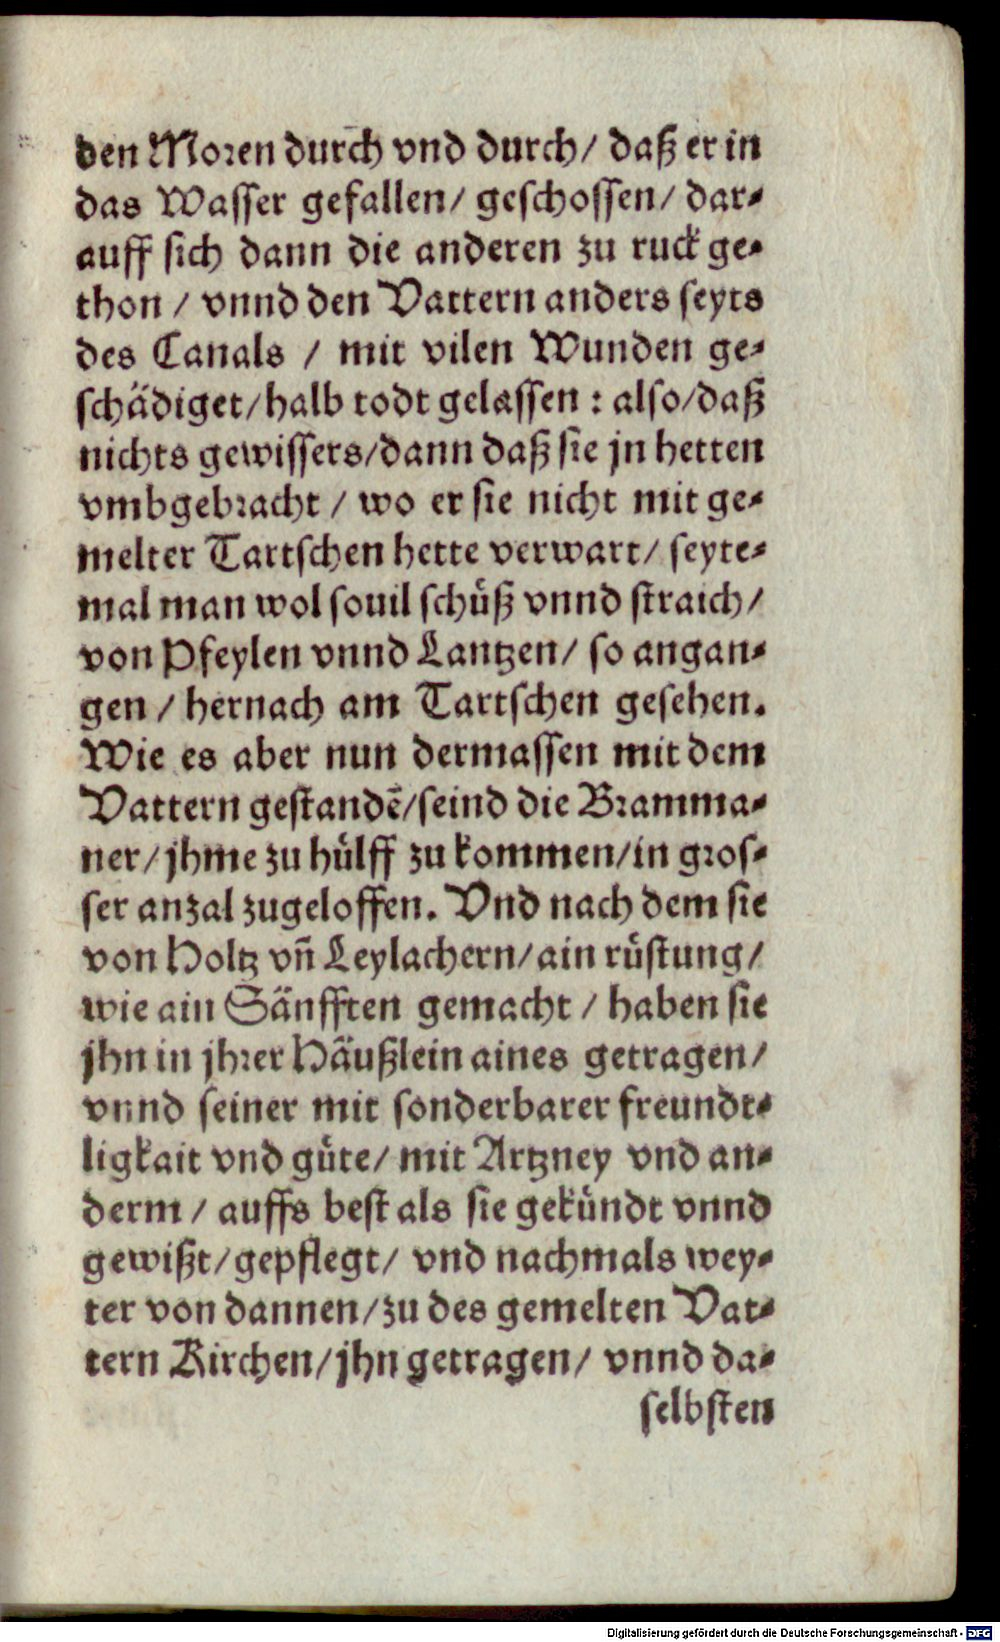 den Moren durch vnd durch/ daß er in
das Wasser gefallen/ geschossen/ dar-
auff sich dann die anderen zu ruck ge-
thon / vnnd den Vattern anders seyts
des Canals / mit vilen Wunden ge-
schädiget/halb todt gelassen : also/daß
nichts gewissers/dann daß sie jn hetten
vmbgebracht / wo er sie nicht mit ge-
melter Tartschen hette verwart/ seyte-
mal man wol souil schůß vnnd straich/
von Pfeylen vnnd Lantzen/ so angan-
gen / hernach am Tartschen gesehen.
Wie es aber nun dermassen mit dem
Vattern gestandē/seind die Bramma-
ner/jhme zu hůlff zu kommen/in gros-
ser anzal zugeloffen. Vnd nach dem sie
von Holtz vn̄ Leylachern/ain růstung/
wie ain Sänfften gemacht / haben sie
jhn in jhrer Häußlein aines getragen/
vnnd seiner mit sonderbarer freundt-
ligkait vnd gůte/ mit Artzney vnd an-
derm / auffs best als sie gekündt vnnd
gewißt/gepflegt/ vnd nachmals wey-
ter von dannen/zu des gemelten Vat-
tern Kirchen/jhn getragen/ vnnd da-
selbsten
Digitalisierung gefördert durch die Deutsche Forschungsgemeinschaft - DFG